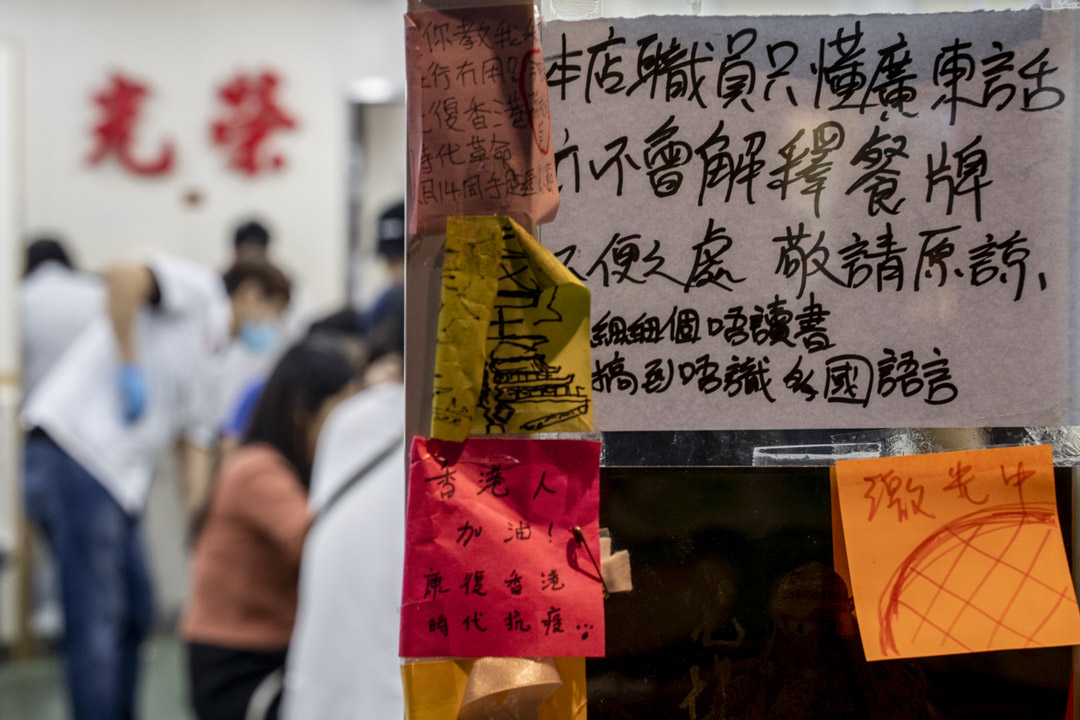 光榮
你教我
行冇用?
復香港
時代革命
本店職員只懂廣東話
不會解釋餐牌
不便之處 敬請原諒、
細細個唔讀書
搞到唔識多國語言
香港人
加油!
康復香港
時代抗疫...
激光中